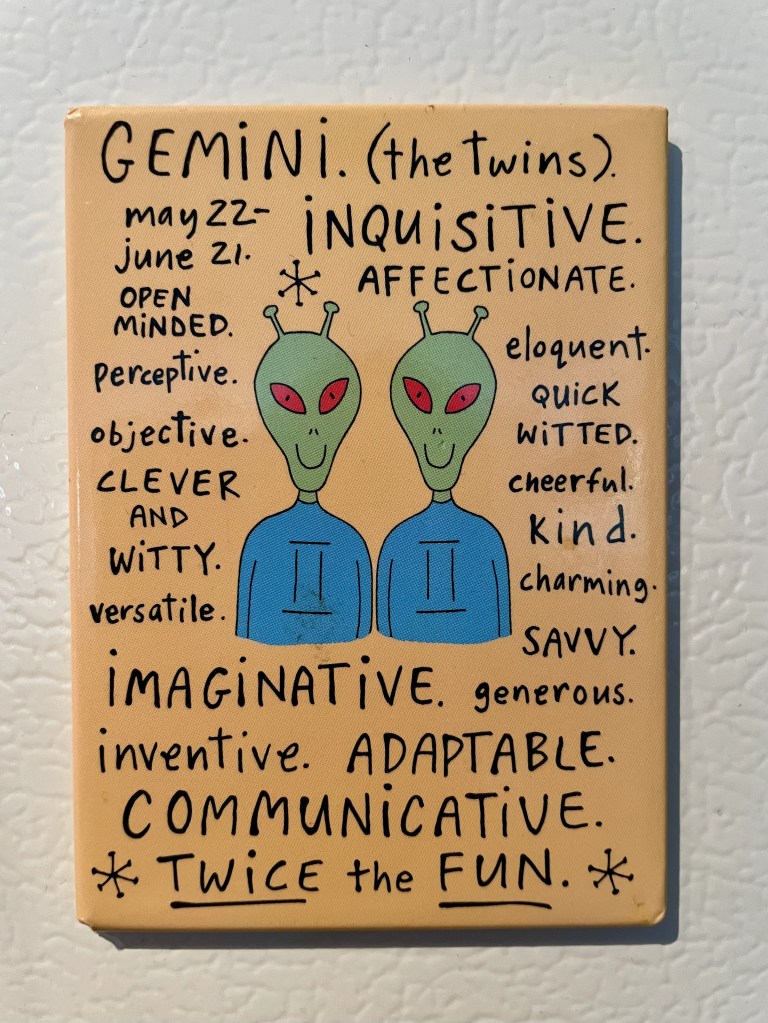 GEMiNi. (the twins).
may 22-
june 21.
iNQUiSiTiVE.
AFFECTiONATE.
OPEN
MiNDED.
perceptive.
objective.
CLEVER
AND
WiTTY.
versatile.
eloquent.
QUiCK
WiTTED.
cheerful.
kind.
charming.
SAVVY.
iMAGiNATiVE. generous.
inventive. ADAPTABLE.
COMMUNiCATiVE.
* TWiCE the FUN. *